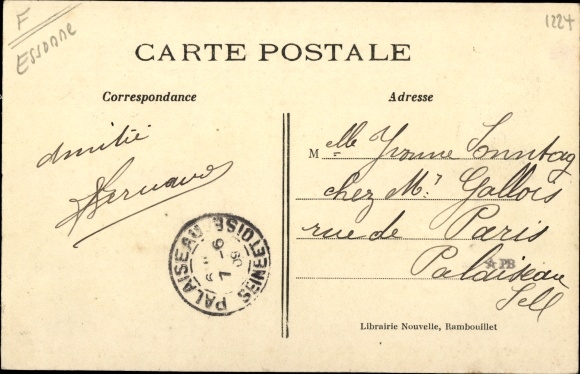 F
ESSONNE
1224
CARTE POSTALE
Correspondance
Adresse
amitié
Mlle Yvonne Sonntag
chez Mr Gallois
rue de Paris
Palaiseau
S et O
☆PB
PALAISEAU
SEINE ET OISE
7 - 6
09
Librairie Nouvelle, Rambouillet